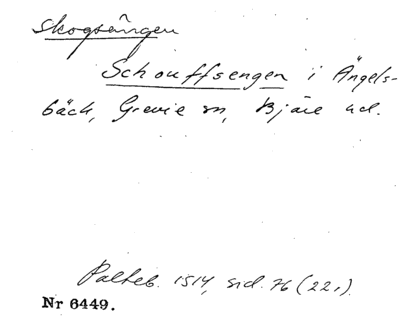 skogsängen
Schouffsengen i Ängels-
bäck, Grevie sn, Bjäre hd.
Palteb. 1514, sid. 76 (22,).
Nr 6449.